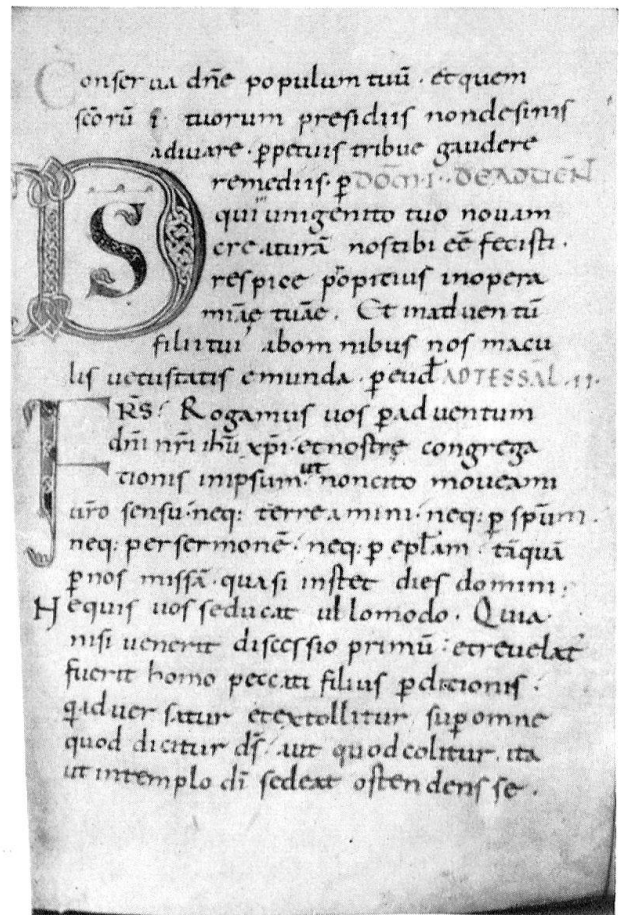 Conserva dñe populum tuū · et quem
scōrū ꝉ· tuorum presidiis non desinis
adiuvare · ꝑpetuis tribue gaudere
remediis · ꝑ DŌM̄ · I · DE ADUEN̄
DS qui unigenito tuo novam
creaturā nos tibi eē fecisti ·
respice ꝓpitius in opera
mīae tuāe . Et in adventū
filii tui ab omnibus nos macu
lis vetustatis emunda · ꝑ eud̄ AD TESSAL̄ · II ·
FRS̄ : Rogamus vos ꝑ adventum
dñi nr̄i ihū xp̄i · et nostrę congrega
tionis in ipsum · ut non cito moveami
ur̄o sensu · neq: terreamini · neq: ꝑ sp̄um ·
neq: per sermonē · neq: ꝑ epl̄am · tāquā
ꝑ nos missā · quasi instet dies domini ;
Ne quis vos seducat ullo modo · Quia
nisi venerit discessio primū · et revelat'
fuerit homo peccati filius ꝑditionis ·
q̄ adversatur et extollitur sup̄ omne
quod dicitur ds̄ · aut quod colitur · ita
ut in templo dī sedeat ostendens se ·